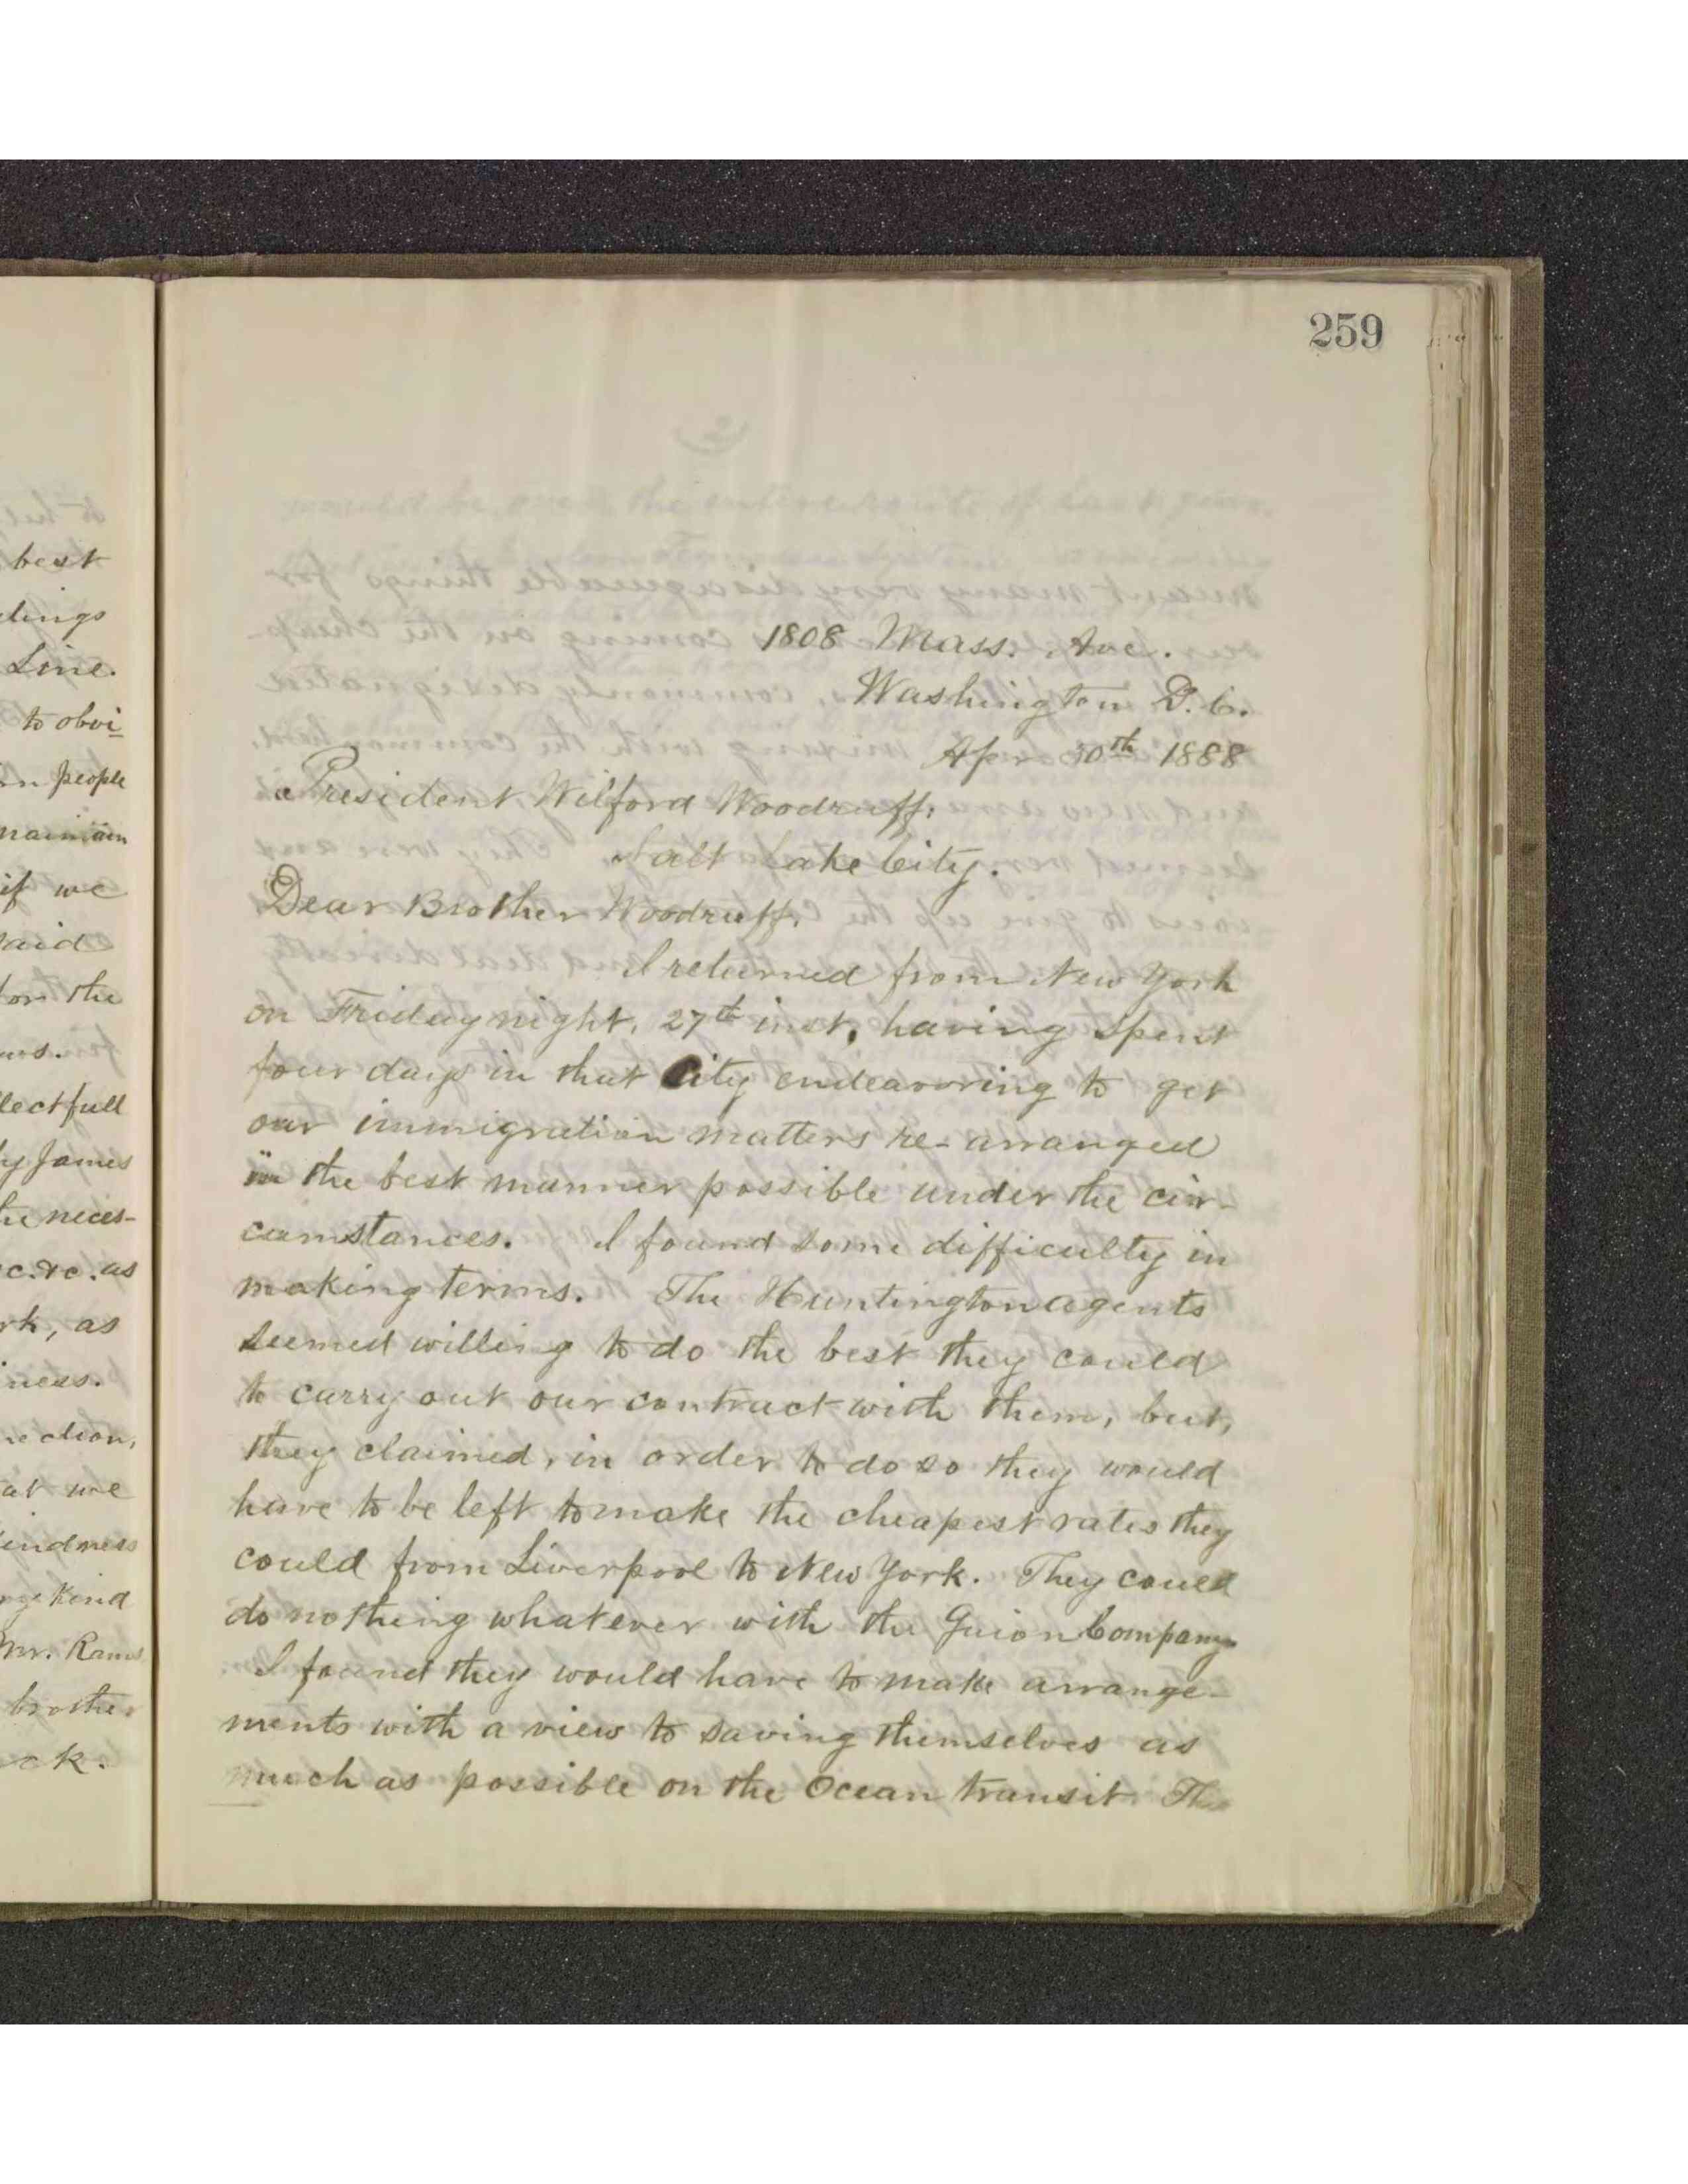 best
dings
Line.
to obvi
people
maintain
if we
said
for the
lectfull
by James
the neces-
&c. &c. as
rk, as
iness.
at we
indness
my kind
Mr. Rams
brother
ck.
259
1808 Mass. Ave.
Washington D.C.
Apr 30th 1888
President Wilford Woodruff,
Salt Lake City.
Dear Brother Woodruff,
I returned from New York
on Friday night, 27th inst, having spent
four days in that City endeavoring to get
our immigration matters re-arranged
in the best manner possible under the cir-
cumstances. I found some difficulty in
making terms. The Huntington agents
seemed willing to do the best they could
to carry out our contract with them, but,
they claimed, in order to do so they would
have to be left to make the cheapest rates they
could from Liverpool to New York. They could
do nothing whatever with the Guion Company
I found they would have to make arrange-
ments with a view to saving themselves as
much as possible on the Ocean transit. The